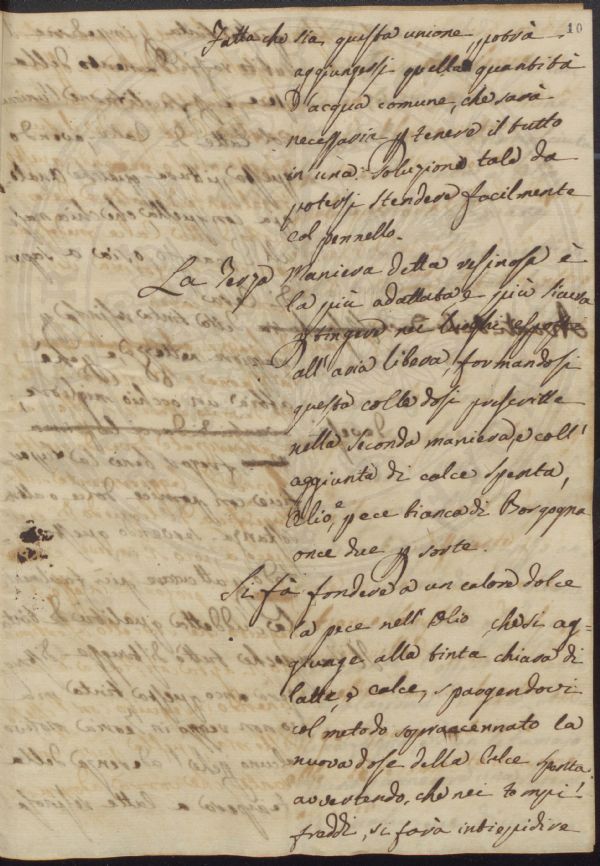 10
Fatta che sia questa unione, potrà
aggiungessi quella quantità
d'acqua comune, che sarà
necessaria p tenere il tutto
in una soluzione tale da
potersi stendere facilmente
col pennello.
La Terza Maniera detta resinosa è
la più adattata e più sicura
p tingere nei luoghi esposti
all' aria libera, formandosi
questa colle dosi prescritte
nella seconda maniera, e coll'
aggiunta di calce spenta,
Olio, e pece bianca di Borgogna
once due p sorte.
Si fà fondere a un calore dolce
la pece nell' Olio che si ag=
giunge alla tinta chiara di
latte, e calce, spargendovi
col metodo sopraaccennato la
nuova dose della Calce spenta
avvertendo, che nei tempi
freddi, si farà intiepidire